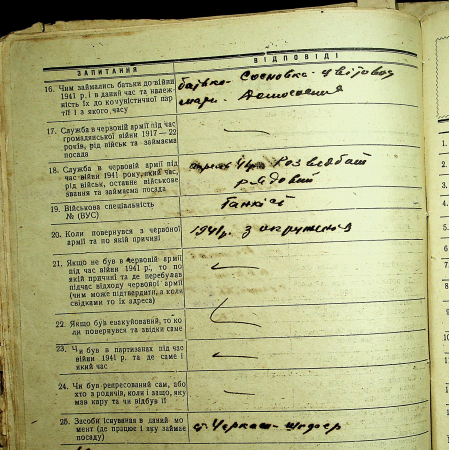 ЗАПИТАННЯ
ВІДПОВІДІ
16. Чим займались батьки до війни
1941 р. і в даний час та належ-
ність їх до комуністичної пар-
тії і з якого часу
батько - Сосновка -
мати - Домогосподиня
17. Служба в червоній армії під час
громадянської війни 1917 — 22
років, рід військ та займаєма
посада
—
18. Служба в червоній армії під
час війни 1941 року, який час,
рід військ, останнє військове
звання та займаєма посада
рядовий
19. Військова спеціальність
№ (ВУС)
танкіст
20. Коли повернувся з червоної
армії та по якій причині
1941р. з окруженія
21. Якщо не був в червоній армії
під час війни 1941 р., то по
якій причині та де перебував
підчас відходу червоної армії
(чим може підтвердити, а коли
свідками то їх адреса)
22. Якщо був евакуйований, то ко-
ли повернувся та звідки саме
23. Чи був в партизанах під час
війни 1941 р. та де саме і
який час
24. Чи був репресований сам, або
хто з родичів, коли і защо, яку
мав кару та чи відбув її
25. Засоби існування в даний мо-
мент (де працює і яку займає
посаду)
Черкаси - шофер